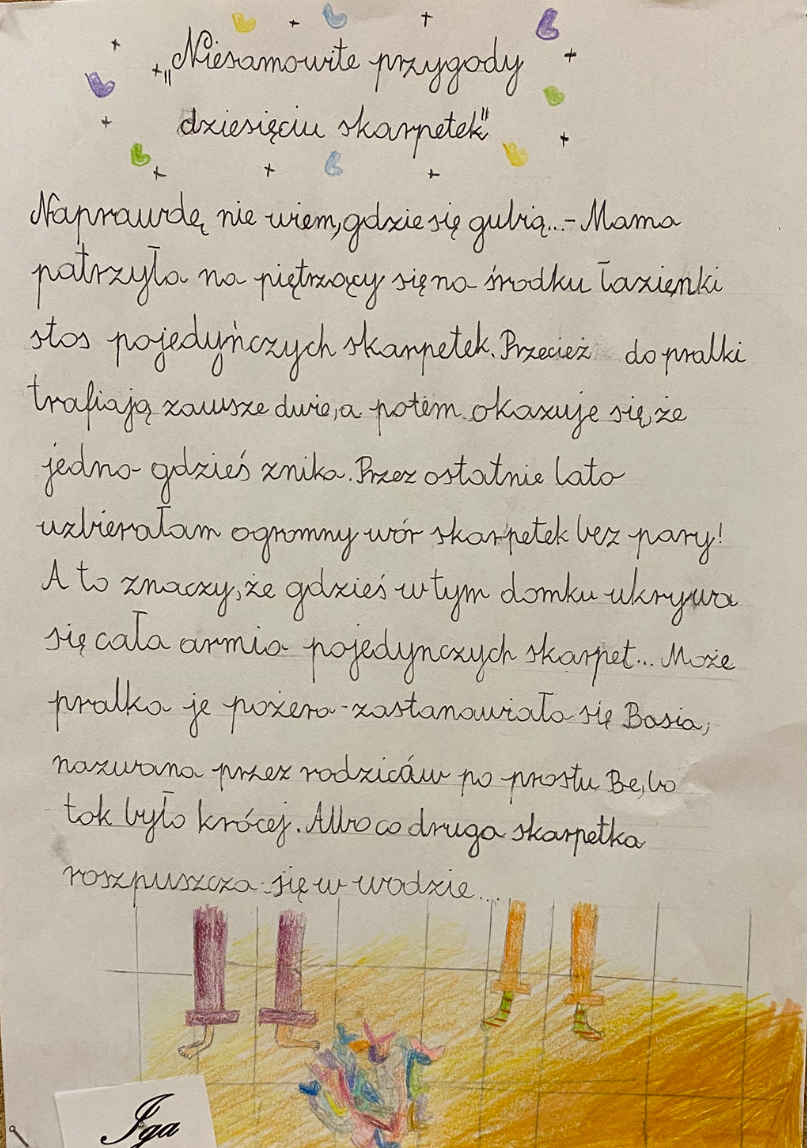 „Niesamowite przygody
dziesięciu skarpetek"
Naprawdę nie wiem, gdzie się gubią...- Mama
patrzyła na piętrzący się na środku łazienki
stos pojedyńczych skarpetek. Przecież do pralki
trafiają zawsze dwie, a potem okazuje się, że
jedna gdzieś znika. Przez ostatnie lato
uzbierałam ogromny wór skarpetek bez pary!
A to znaczy, że gdzieś w tym domku ukrywa
się cała armia pojedynczych skarpet... Może
pralka je pożera-zastanawiała się Basia,
nazwana przez rodziców po prostu Be, bo
tak było krócej. Albo co druga skarpetka
roszpuszcza się w wodzie...
Iga